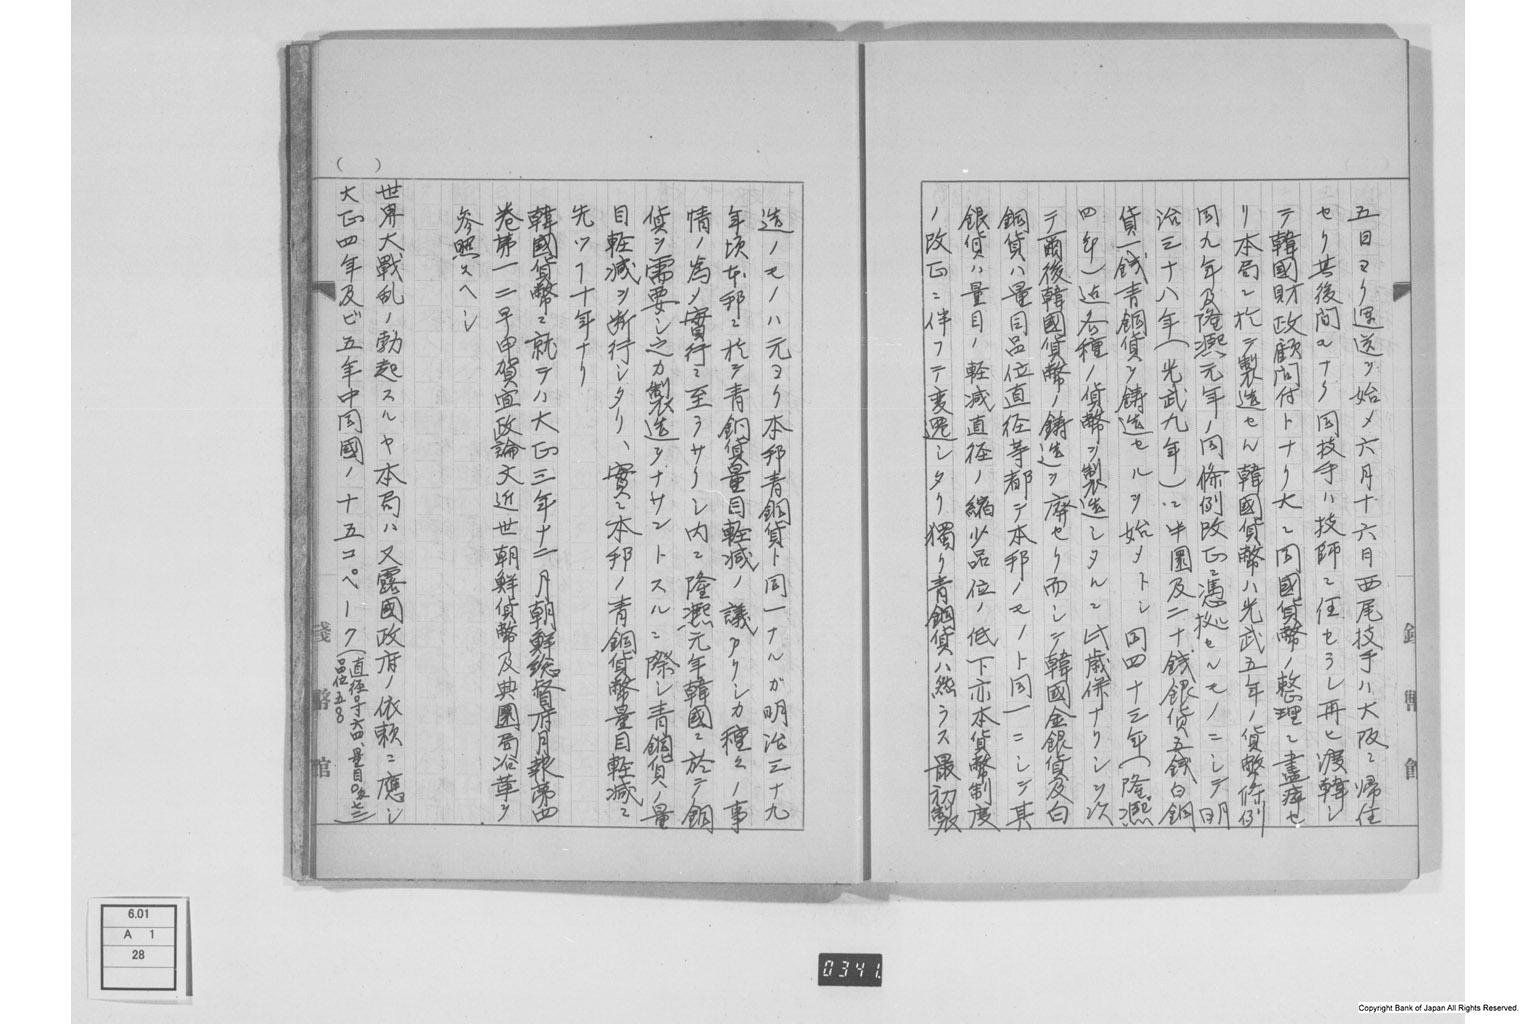 五日ヨリ運送ヲ始メ六月十六日西尾技手ハ大阪ニ帰任
セリ其後間モナク同技手ハ技師ニ任セラレ再ヒ渡韓シ
テ韓國財政顧問付トナリ大ニ同國貨幣ノ整理ニ盡瘁セ
リ本局ニ於テ製造セル韓國貨幣ハ光武五年ノ貨幣條例
同九年及隆凞元年ノ同條例改正ニ憑拠セルモノニシテ明
治三十八年（光武九年）ニ半圜及二十銭銀貨五銭白銅
貨一銭青銅貨ヲ鋳造セルヲ始メトシ同四十三年（隆凞
四年）迠各種ノ貨幣ヲ製造シタルニ此歳併ナリシヲ以
テ爾後韓國貨幣ノ鋳造ヲ廃セリ而シテ韓國金銀貨及白
銅貨ハ量目品位直径等都テ本邦ノモノト同一ニシテ其
銀貨ハ量目ノ軽減直径ノ縮少品位ノ低下亦本貨幣制度
ノ改正ニ伴フテ変更シタリ獨リ青銅貨ハ然ラス最初製
造ノモノハ元ヨリ本邦青銅貨ト同一ナルガ明治三十九
年頃本邦ニ於テ青銅貨量目軽減ノ議アリシカ種々ノ事
情ノ為メ實行ニ至ラサリシ内ニ隆凞元年韓國ニ於テ銅
貨ヲ需要シ之カ製造ヲナサントスルニ際シ青銅貨ノ量
目軽減ヲ断行シタリ、實ニ本邦ノ青銅貨幣量目軽減ニ
先ツコト十年ナリ
韓國貨幣ニ就テハ大正三年十二月朝鮮総督府月報第四
巻第一二早甲賀宜政論文近世朝鮮貨幣及典圜局沿革ヲ
参照スヘシ
世界大戰乱ノ勃起スルヤ本局ハ又露國政府ノ依頼ニ應シ
大正四年及ビ五年中同國ノ十五コペーク（直径
品位五〇
( )
錢幣館
6.01
A 1
28
0341.
Copyright Bank of Japan All Rights Reserved.